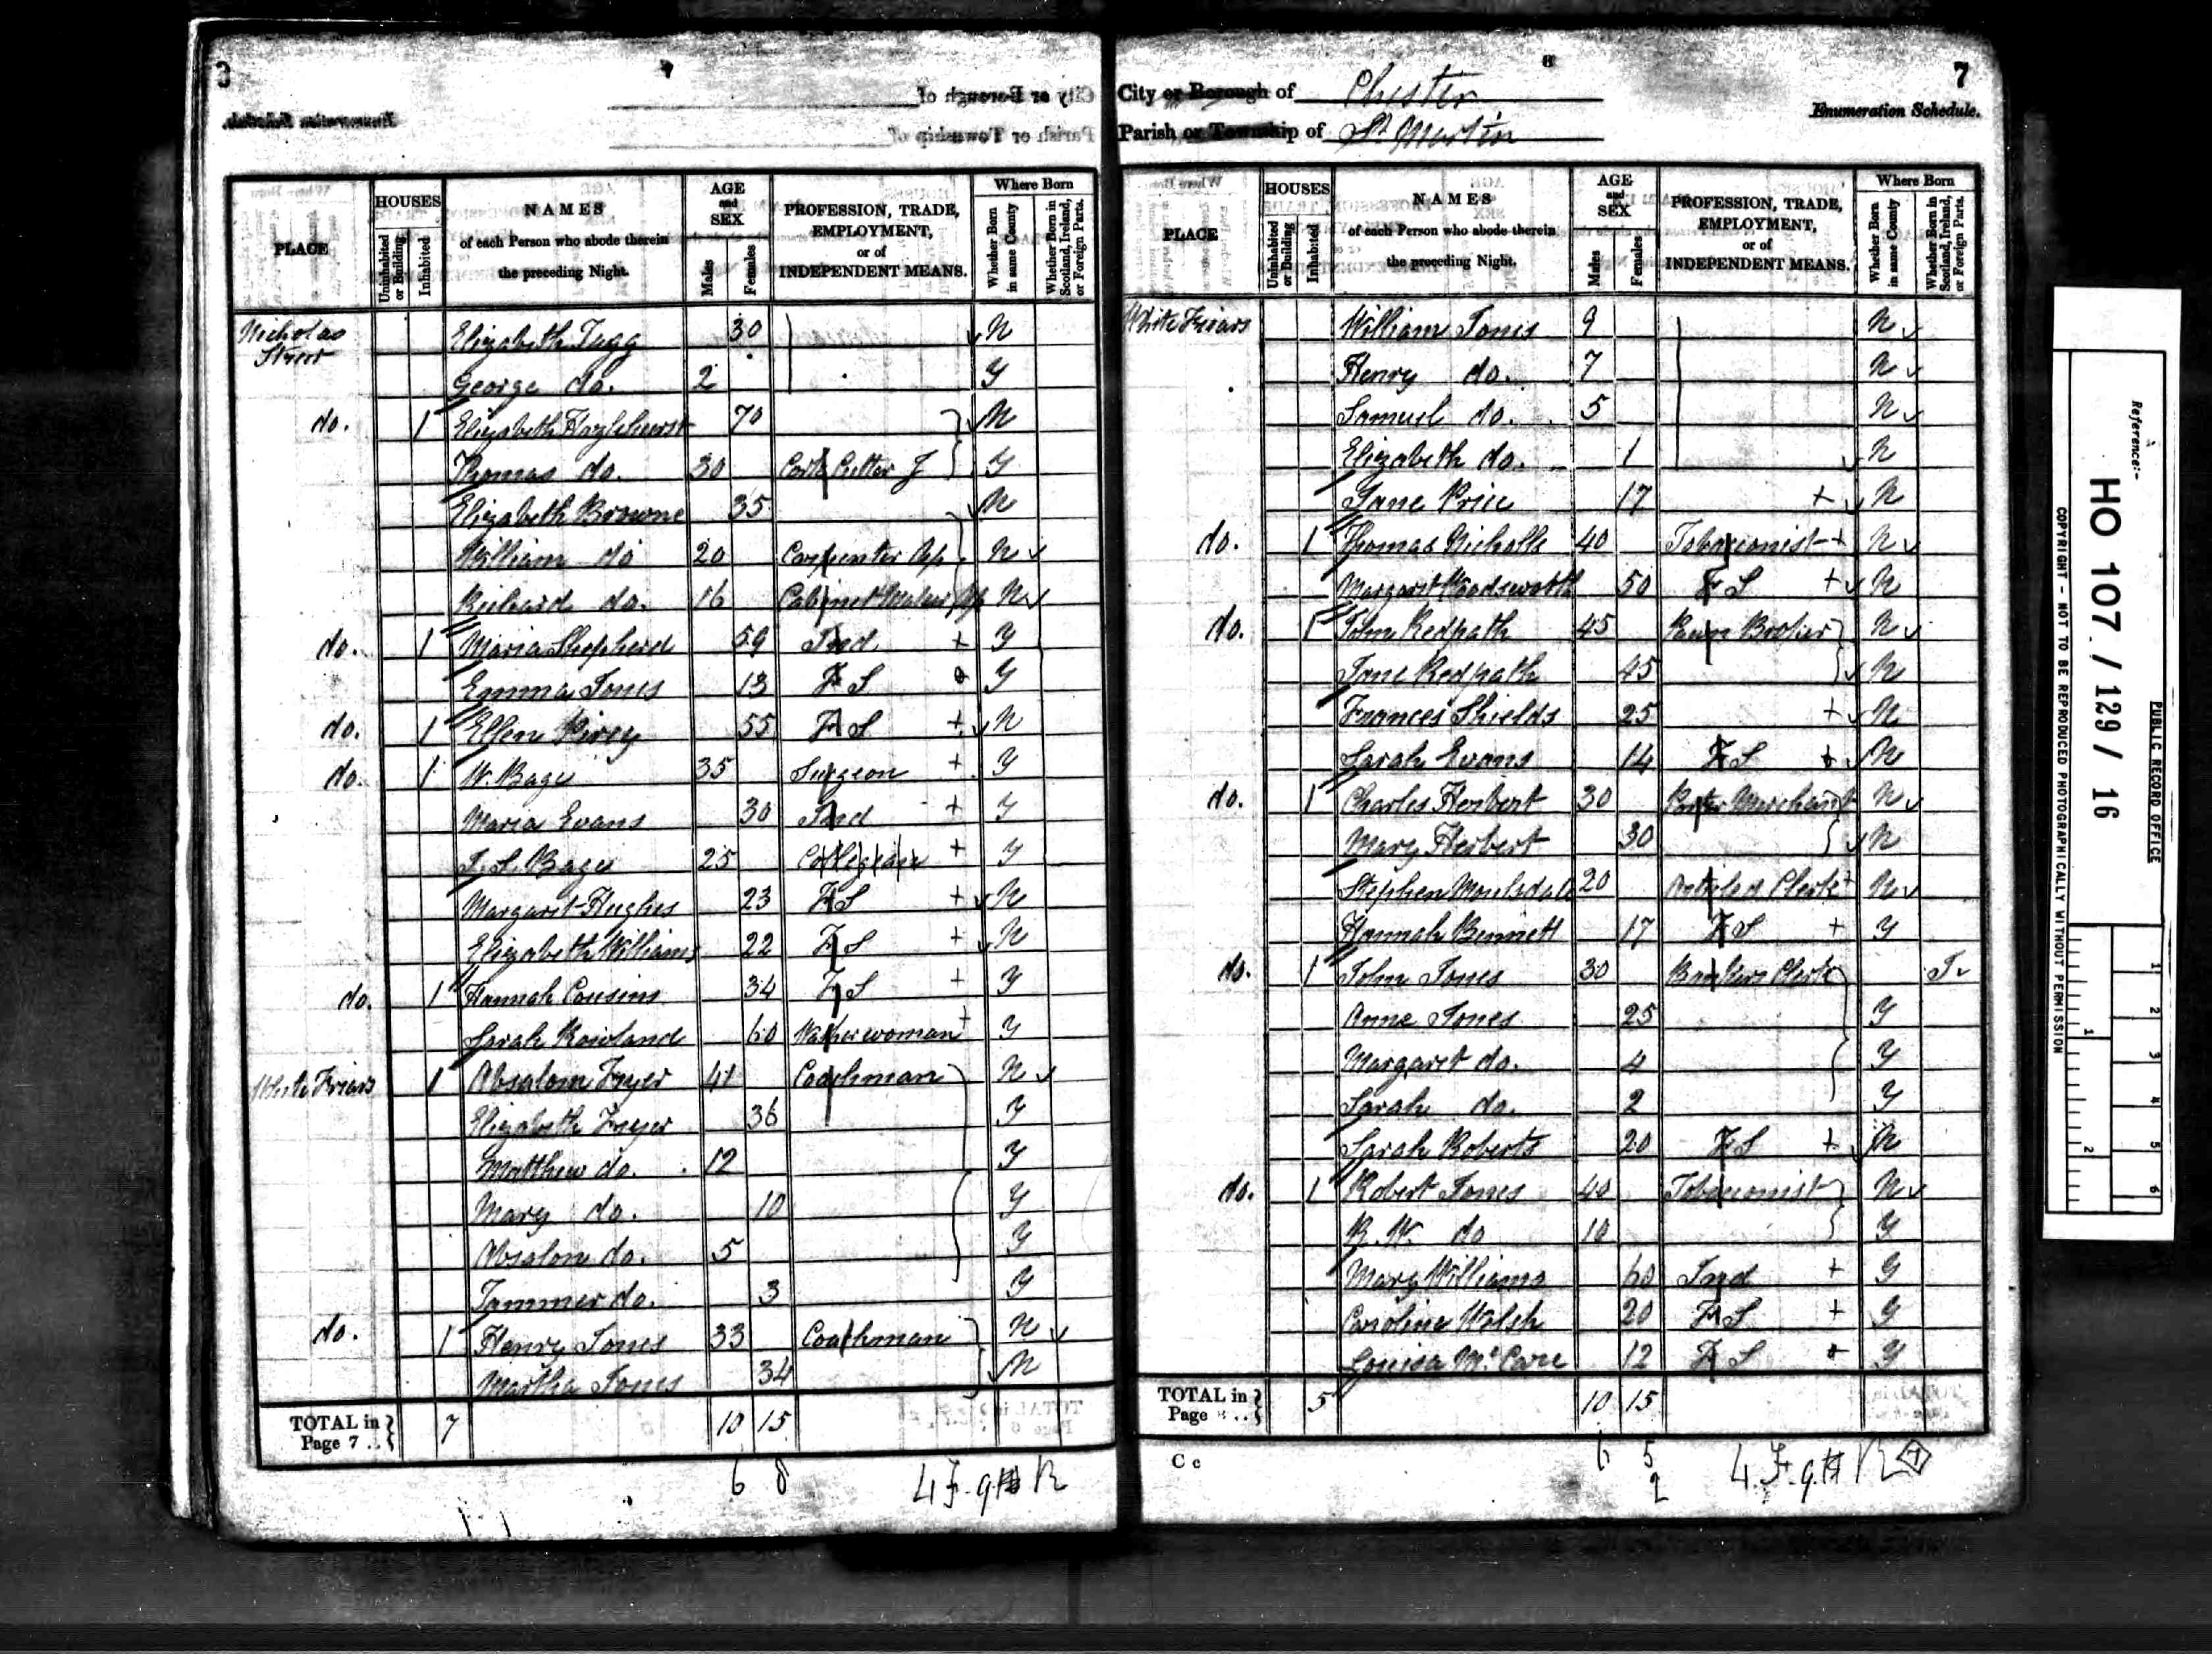 City or Borough of
Parish or Township of
Enumeration Schedule.
PLACE
HOUSES
Uninhabited or Building
Inhabited
NAMES
of each Person who abode therein
the preceding Night.
AGE
and
SEX
Males
Females
PROFESSION, TRADE,
EMPLOYMENT,
or of
INDEPENDENT MEANS.
Where Born
Whether Born in same County
Whether Born in Scotland, Ireland, or Foreign Parts.
Nicholas Street Elizabeth 30 N
George do. 2 Y
do. 1 Elizabeth Hazlehurst 70 N
Thomas do. 30 Cork Cutter J Y
Elizabeth Browne 35 N
William do 20 Carpenter Ap. N
Richard do. 16 Cabinet Maker Ap N
do. 1 Maria Shepherd 59 Ind + Y
Emma Jones 13 F S Y
do. 1 Ellen 55 F S + N
do. 1 W. Bage 35 Surgeon + Y
Maria Evans 30 Ind + Y
Bage 25 Collegian + Y
Margaret Hughes 23 F S + N
Elizabeth Williams 22 F S + N
do. 1 Hannah Cousins 34 F S + Y
Sarah Rowland 60 Washerwoman + Y
White Friars 1 Absalom Fryer 41 Coachman N
Elizabeth Fryer 36 Y
Matthew do. 12 Y
Mary do. 10 Y
Absalom do. 5 Y
do. 3 Y
do. 1 Henry Jones 33 Coachman N
Martha Jones 34 N
TOTAL in Page 7 .. 7 10 15
6 8
City or Borough of Chester
Parish or Township of St. Martin
7
Enumeration Schedule.
PLACE
HOUSES
Uninhabited or Building
Inhabited
NAMES
of each Person who abode therein
the preceding Night.
AGE
and
SEX
Males
Females
PROFESSION, TRADE,
EMPLOYMENT,
or of
INDEPENDENT MEANS.
Where Born
Whether Born in same County
Whether Born in Scotland, Ireland, or Foreign Parts.
White Friars William Jones 9 N
Henry do. 7 N
Samuel do. 5 N
Elizabeth do. 1 N
Jane Price 17 + N
do. 1 Thomas Nicholls 40 Tobacconist + N
Margaret Woodsworth 50 F S + N
do. 1 John Redpath 45 Pawn Broker N
Jane Redpath 45 N
Frances Shields 25 + N
Sarah Evans 14 F S + N
do. 1 Charles Herbert 30 Porter Merchant N
Mary Herbert 30 N
Stephen Moulsdale 20 Articled Clerk + N
Hannah Bennett 17 F S + Y
do. 1 John Jones 30 Bankers Clerk I
Anne Jones 25 Y
Margaret do. 4 Y
Sarah do. 2 Y
Sarah Roberts 20 F S + N
do. 1 Robert Jones 40 Tobacconist N
R. W. do 10 Y
Mary Williams 60 Ind + Y
Caroline Walsh 20 F S + Y
Louisa McCare 12 F S + Y
TOTAL in Page 5 10 15
C c
6 5
2
Reference:-
HO 107 / 129 / 16
PUBLIC RECORD OFFICE
COPYRIGHT - NOT TO BE REPRODUCED PHOTOGRAPHICALLY WITHOUT PERMISSION
1 2 3 4 5 6
1 2